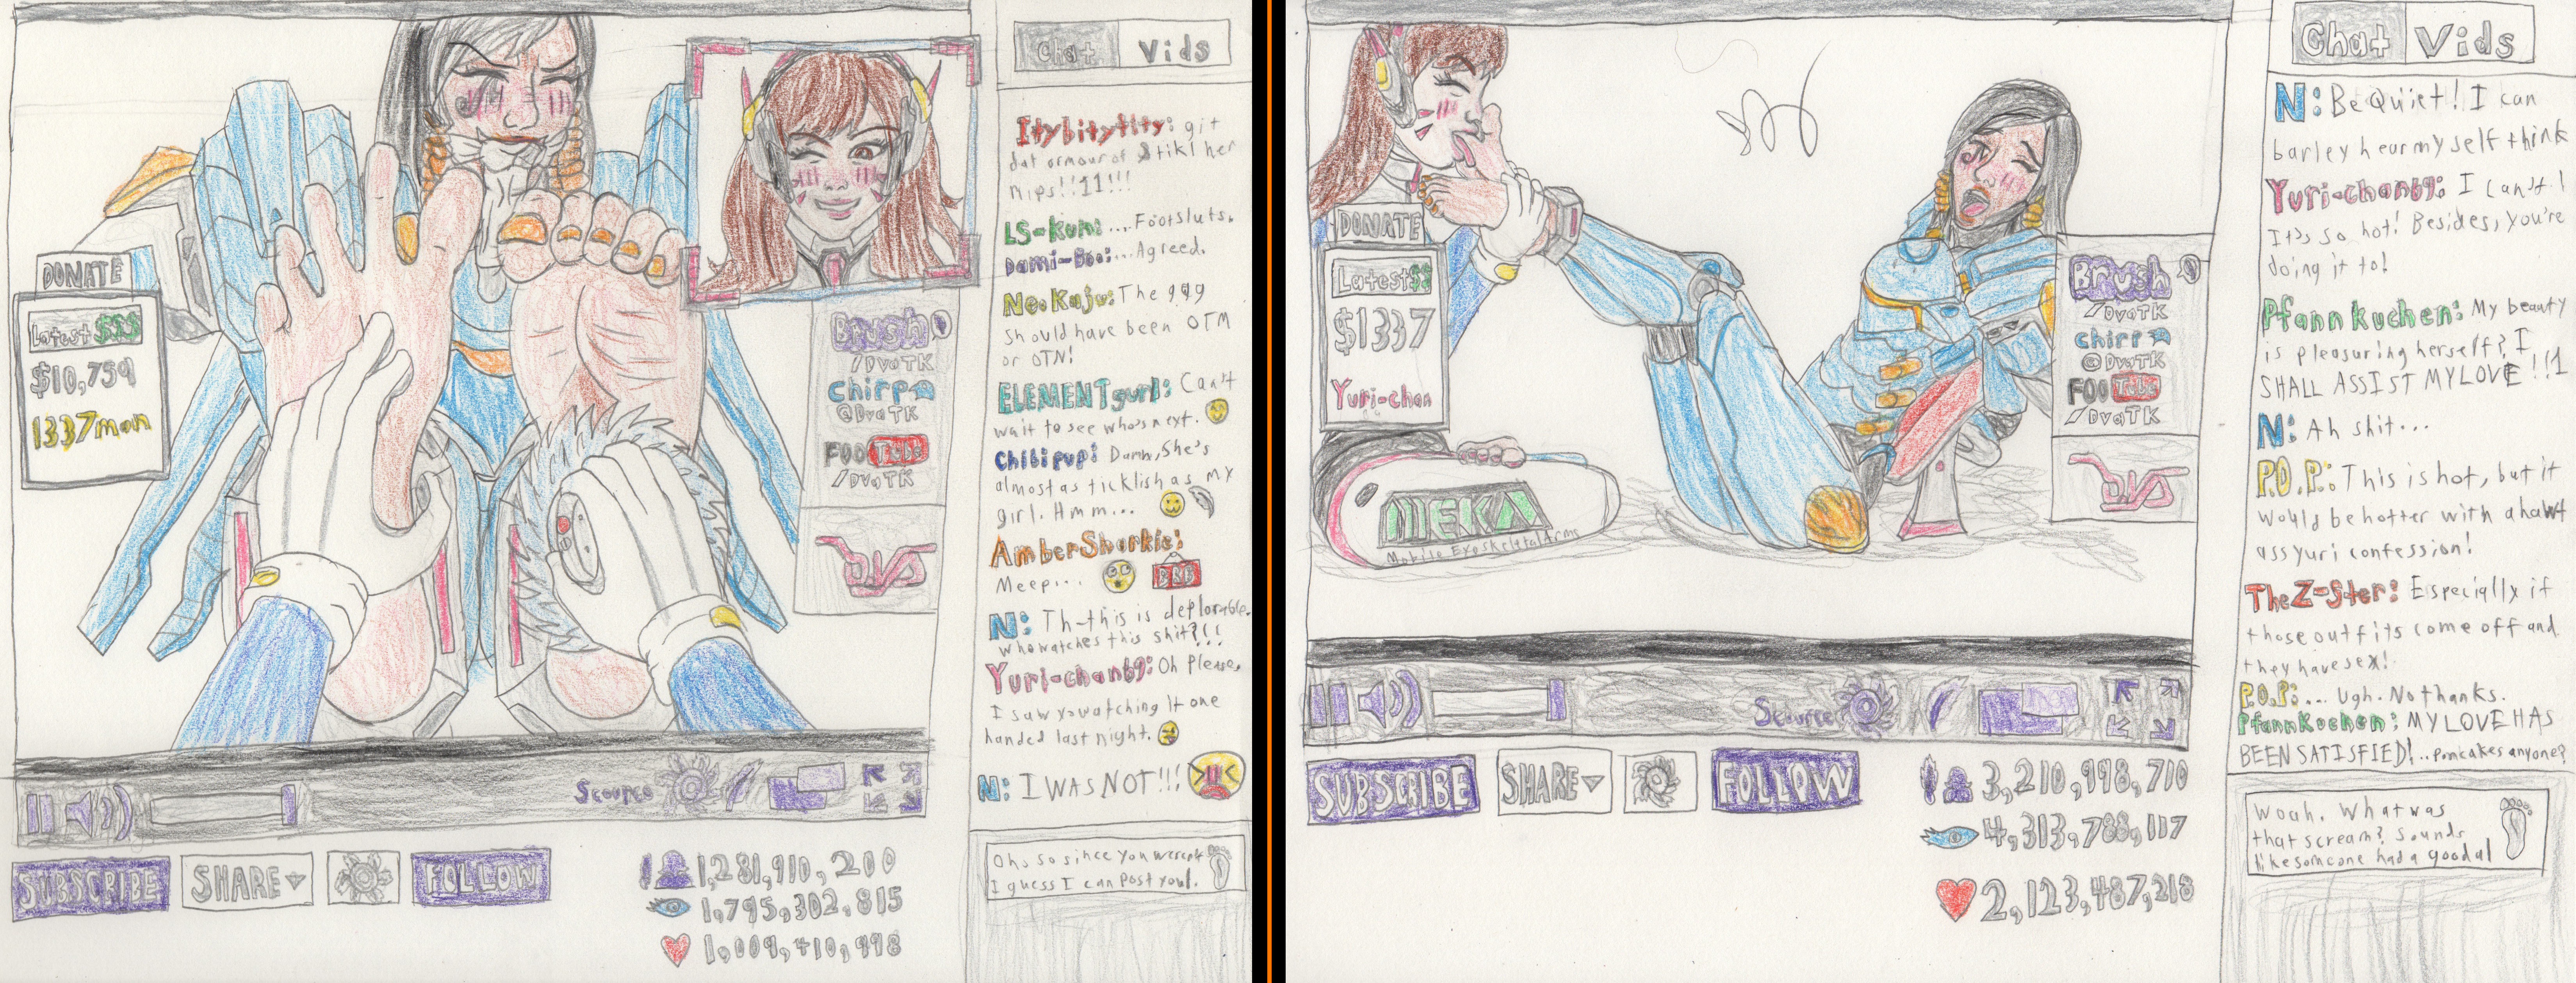 Chat Vids
Itybitytity: git
dat armour off & tikl her
nips!!11!!!
LS-kun: ....Footsluts.
Dami-Boo: ...Agreed.
NeoKaju: The 999
should have been OTM
or OTN!
ELEMENTgurl: Can't
wait to see who's next.
Chibipup: Damn, She's
almost as ticklish as my
girl. Hmm...
AmberSharkie:
Meep...
BRB
N: Th-this is deplorable.
who watches this shit?!!
Yuri-chan69: Oh Please,
I saw you watching it one
handed last night.
N: I WAS NOT!!!
Oh, so since you weren't
I guess I can post you
DONATE
Latest $$$
$10,759
1337man
Brush
/DvaTK
chirp
@DvaTK
FOO Tube
/DvaTK
Scource
SUBSCRIBE SHARE FOLLOW
1,281,910,200
1,795,302,815
1,009,410,998
Chat Vids
N: Be Quiet! I can
barley hear myself think
Yuri-chan69: I can't!
It's so hot! Besides, you're
doing it to!
Pfannkuchen: My beauty
is pleasuring herself? I
SHALL ASSIST MY LOVE!!1
N: Ah shit...
P.O.P.: This is hot, but it
would be hotter with a hawt
ass yuri confession!
TheZ-Ster: Especially if
those outfits come off and
they have sex!
P.O.P.: ... Ugh. No thanks.
PfannKuchen: MY LOVE HAS
BEEN SATISFIED!...Pancakes anyone?
Woah. What was
that scream? Sounds
like someone had a good
DONATE
Latest $$
$1337
Yuri-chan
MEKA
Mobile Exoskeletal Arms
Brush
/DvaTK
chirp
@DvaTK
FOO Tube
/DvaTK
Scource
SUBSCRIBE SHARE FOLLOW
3,210,998,710
4,313,788,117
2,123,487,218